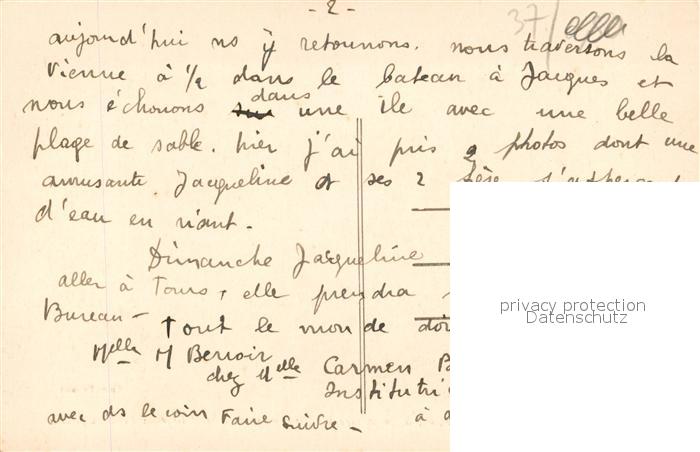 - 2 -
37
aujourd'hui ns y retournons. nous traversons la
Vienne à 1/2 dans le bateau à Jacques et
nous échouons dans une île avec une belle
plage de sable. hier j'ai pris 2 photos dont une
amusante. Jacqueline et ses 2
d'eau en riant.
Dimanche Jacqueline
aller à Tours, elle prendra
Bureau - Tout le monde
Melle M Benoir
chez Melle Carmen B
avec ds le coin Faire suivre - à
privacy protection
Datenschutz